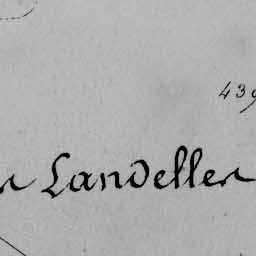 439
Landeller